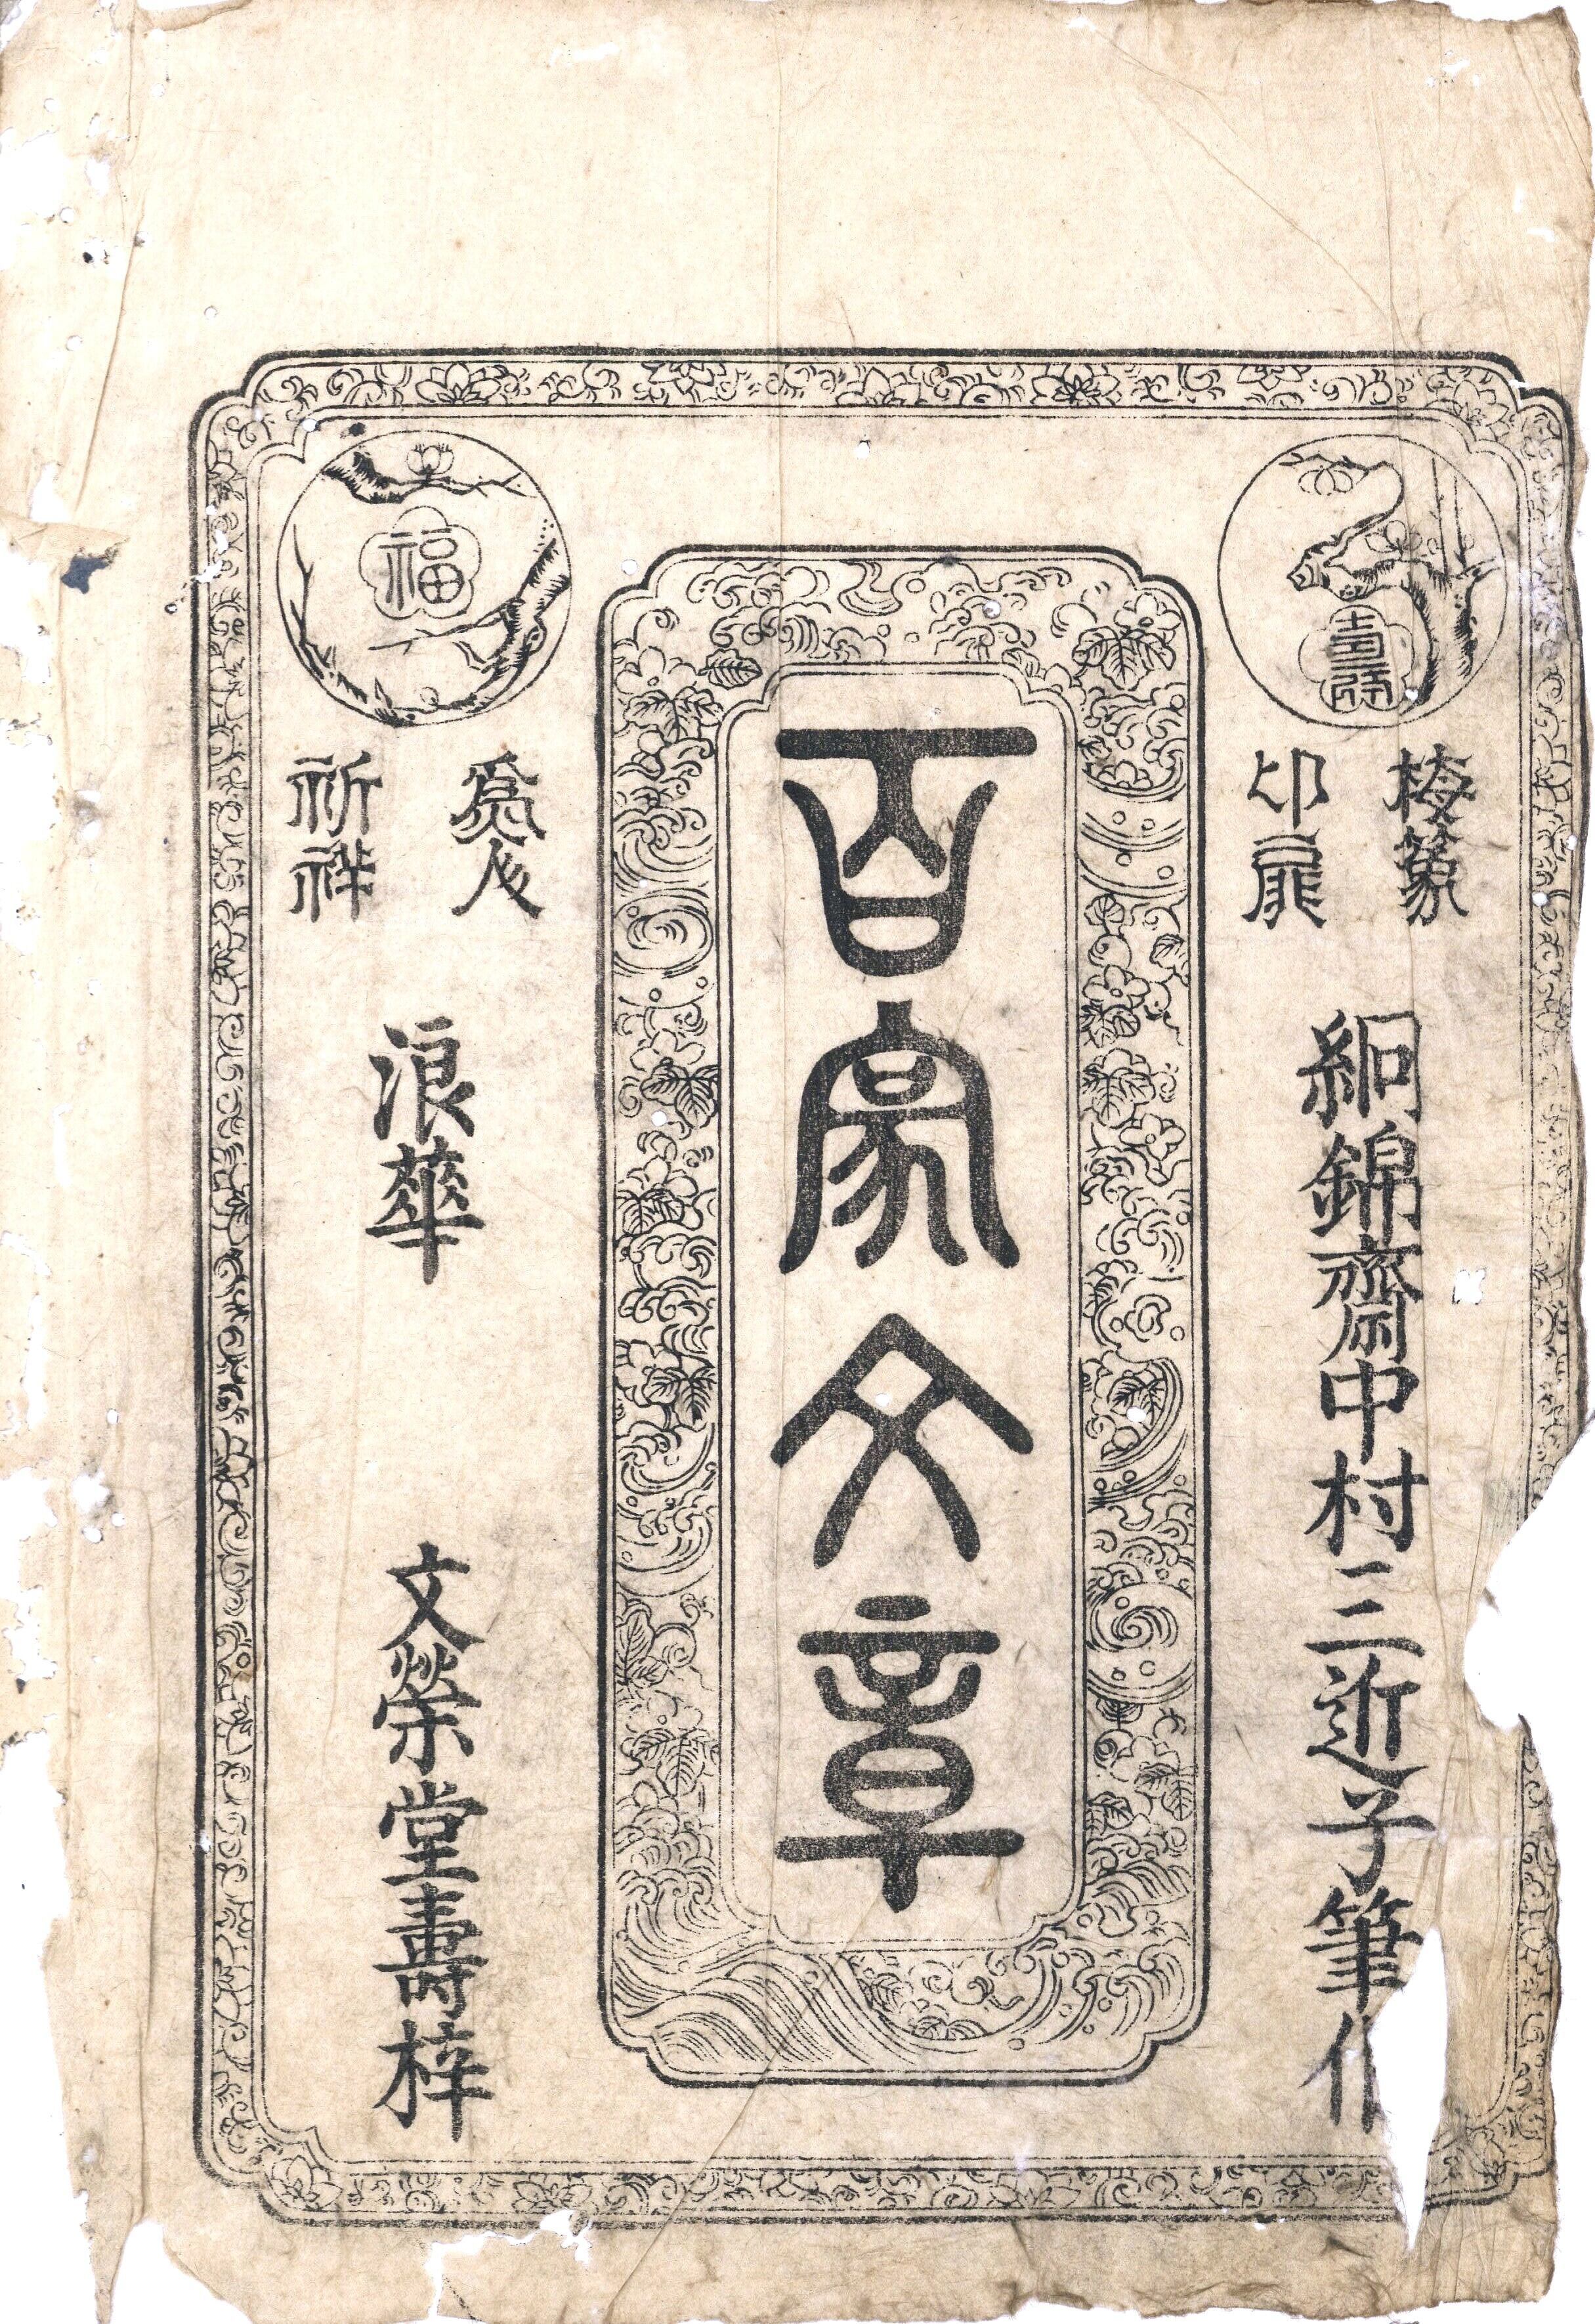 壽
梅篆
印扉
絅錦齋中村三近子筆
百家文章
福
爲人
祈祥
浪華 文榮堂壽梓